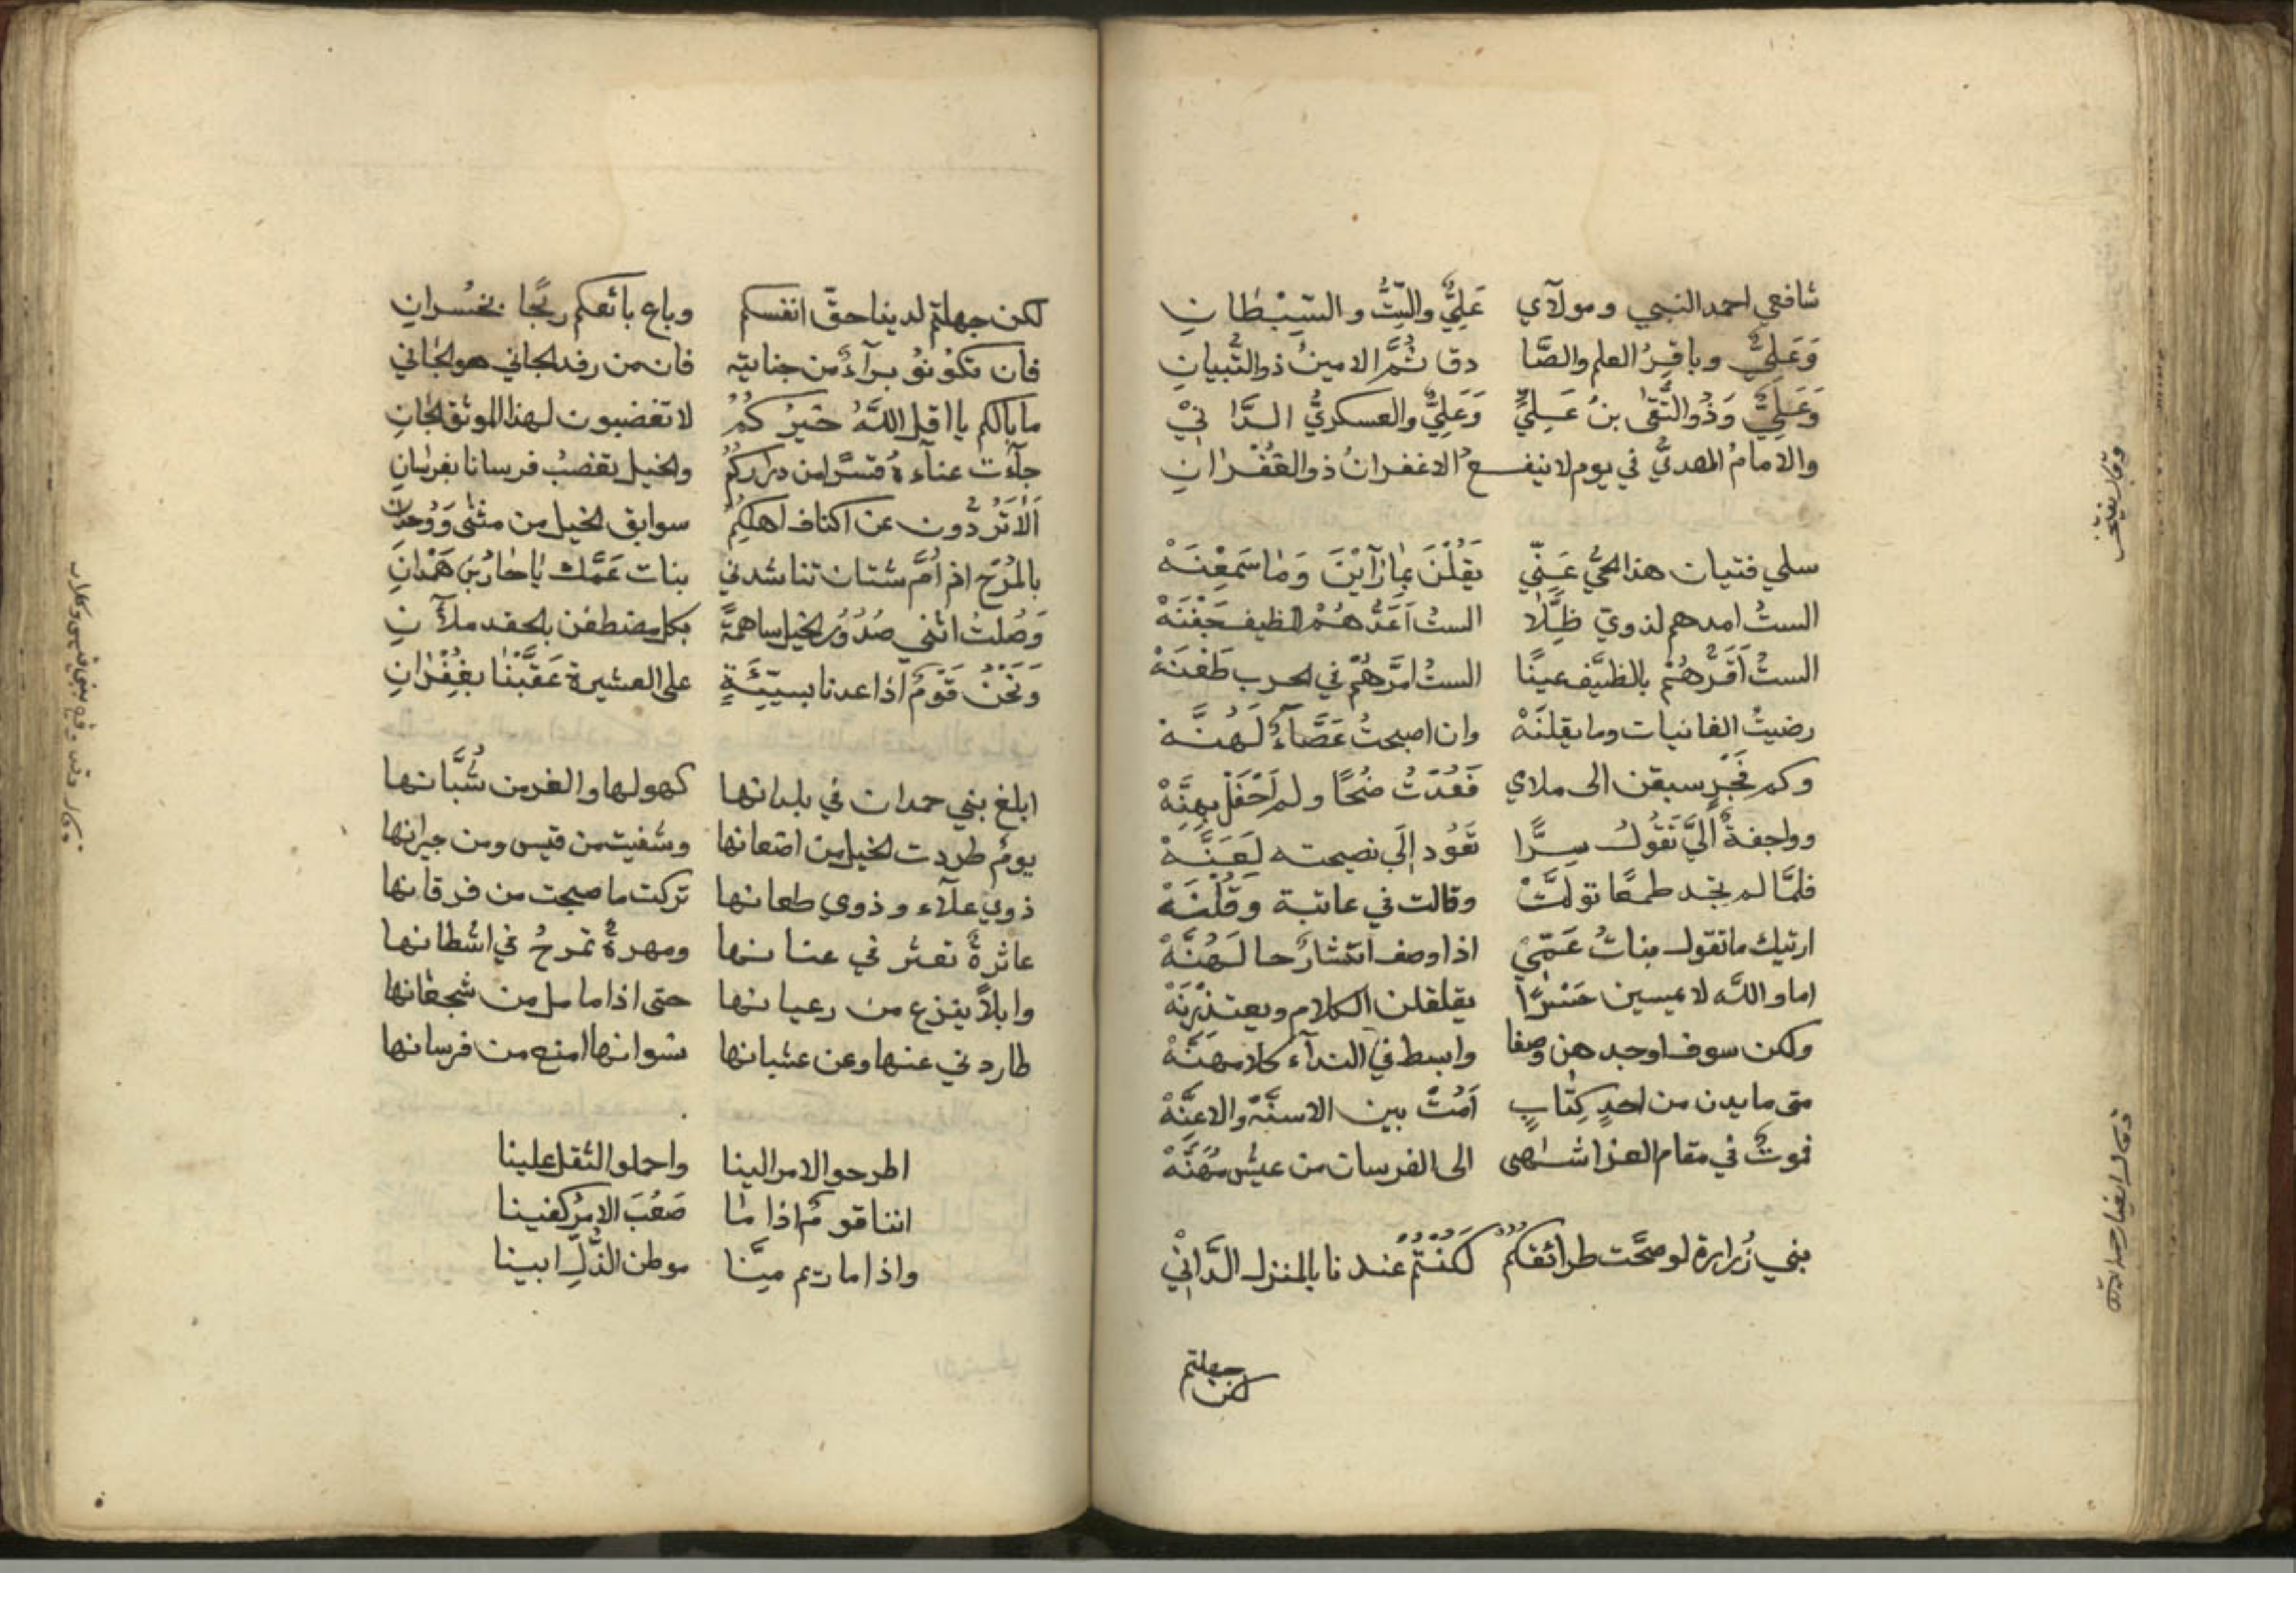 شافعي احمد النبي ومولآي عَلِيٌّ والبِنْتُ والسِّبْطَانِ
وَعَلِيٌّ وباقِرُ العلم والصَّا دق ثُمَّ الامينُ ذوالتِّبيانِ
وَعَلِيٌّ وَذُوالتُّقىٰ بنُ عَلِيٍّ وَعَلِيٌّ والعسكريُّ الدَّانِيْ
والامامُ المهديُّ في يوم لا ينفعُ الا غفرانُ ذوالغُفْرَانِ
سلي فتيان هذا الحيُّ عَنِّي يَقُلْنَ بِمَا رَآيْنَ وَمَا سَمِعْنَهْ
الستُ امدهم لذوي ظِلَّالا الستُ اَعَدُّهُمْ للظيف جَفْنَهْ
الستُ اَقَرُّهُمْ بالظيَّف عينًا الستُ امَرُّهُمْ في الحرب طَعْنَهْ
رضيتُ الغانيات وما يقلنَهْ وان اصبحتُ عَصَّآءً لَهُنَّهْ
وكم فَجْرٍ سبقن الى ملاي فَعُدْتُ ضُحًا ولم اَحْفَلْ بِهِنَّهْ
وواجفةٌ اليَّ تَقُولُ سِرًّا تَعُود اِلَى نصيحته لَعَنَّهْ
فلمَّا لم تجد طمعًا تولَّتْ وقالت في عاتبة وَقُلْنَهْ
ارتيك ما تقول بناتُ عَمِّيْ اذا وصف انتشارٌ حالَهُنَّهْ
اما والله لا يمسين حَسْرًا يقلقلن الكلام ويعتذِرْنَهْ
ولكن سوف اوجدهن وصفا وابسط في الندآء كلامهنَّهْ
متى ما يدن من احدٍ كِتَابٍ اَمُتْ بين الاسنَّة والاعِنَّهْ
فموتٌ في مقام العز اشهى الى الفرسان من عيش مُهَنَّهْ
بني زُرارة لو صحَّت طرائقكُمْ لَكُنْتُمُ عندنا بالمنزل الدَّانِيْ
لكن جهلتم
لكن جهلتم لدينا حقّ انفسكم وباع بائعكم ربحًا بخسرانِ
فان تكونوُ برآءً من جنايته فان من رفد الجاني هو الجاني
ما بالكم يا اقل اللّٰهُ خَيْرُكُمُ لا تغضبون لهذا الموثق الجانِ
اَلَا تَرُدُّون عن اكناف اهلكُمُ سوابق الخيل من مثنى وَوُحدانِ
بالمرْج اذ اُمُّ ستان تناشدني بنات عَمِّك يا حارُ بن حَمْدانِ
وَصُلْتُ اثني صُدُوْرَ الخيل ساهمةً بكل مضطغن بالحقد ملآنِ
وَنَحْنُ قَوْمٌ اذا عدنا بسيّئَةٍ على العشيرة عَقَّبْنا بغُفْرانِ
ابلغ بني حمدان في بلدانها كهولها والغر من شُبَّانها
يومُ طردت الخيل من اضعانها وشفيت من قيس ومن جيرانها
ذوي علآء وذوي طعانها تركت ما صبحت من فرقانها
عاثرةٌ تعثر في عنانها ومهرةٌ تمرحُ في اشطانها
وابلًا ينزع من رعيانها حتى اذا ما مل من شجعانها
طاردني عنها وعن عشيانها نسوانها امنع من فرسانها
اطرحوا الامر الينا واحملوا الثقل علينا
اننا قومٌ اذا مٰا صَعُبَ الامرُ كفينا
واذا ما ريم مِنَّا موطن الذُّلِّ ابينا